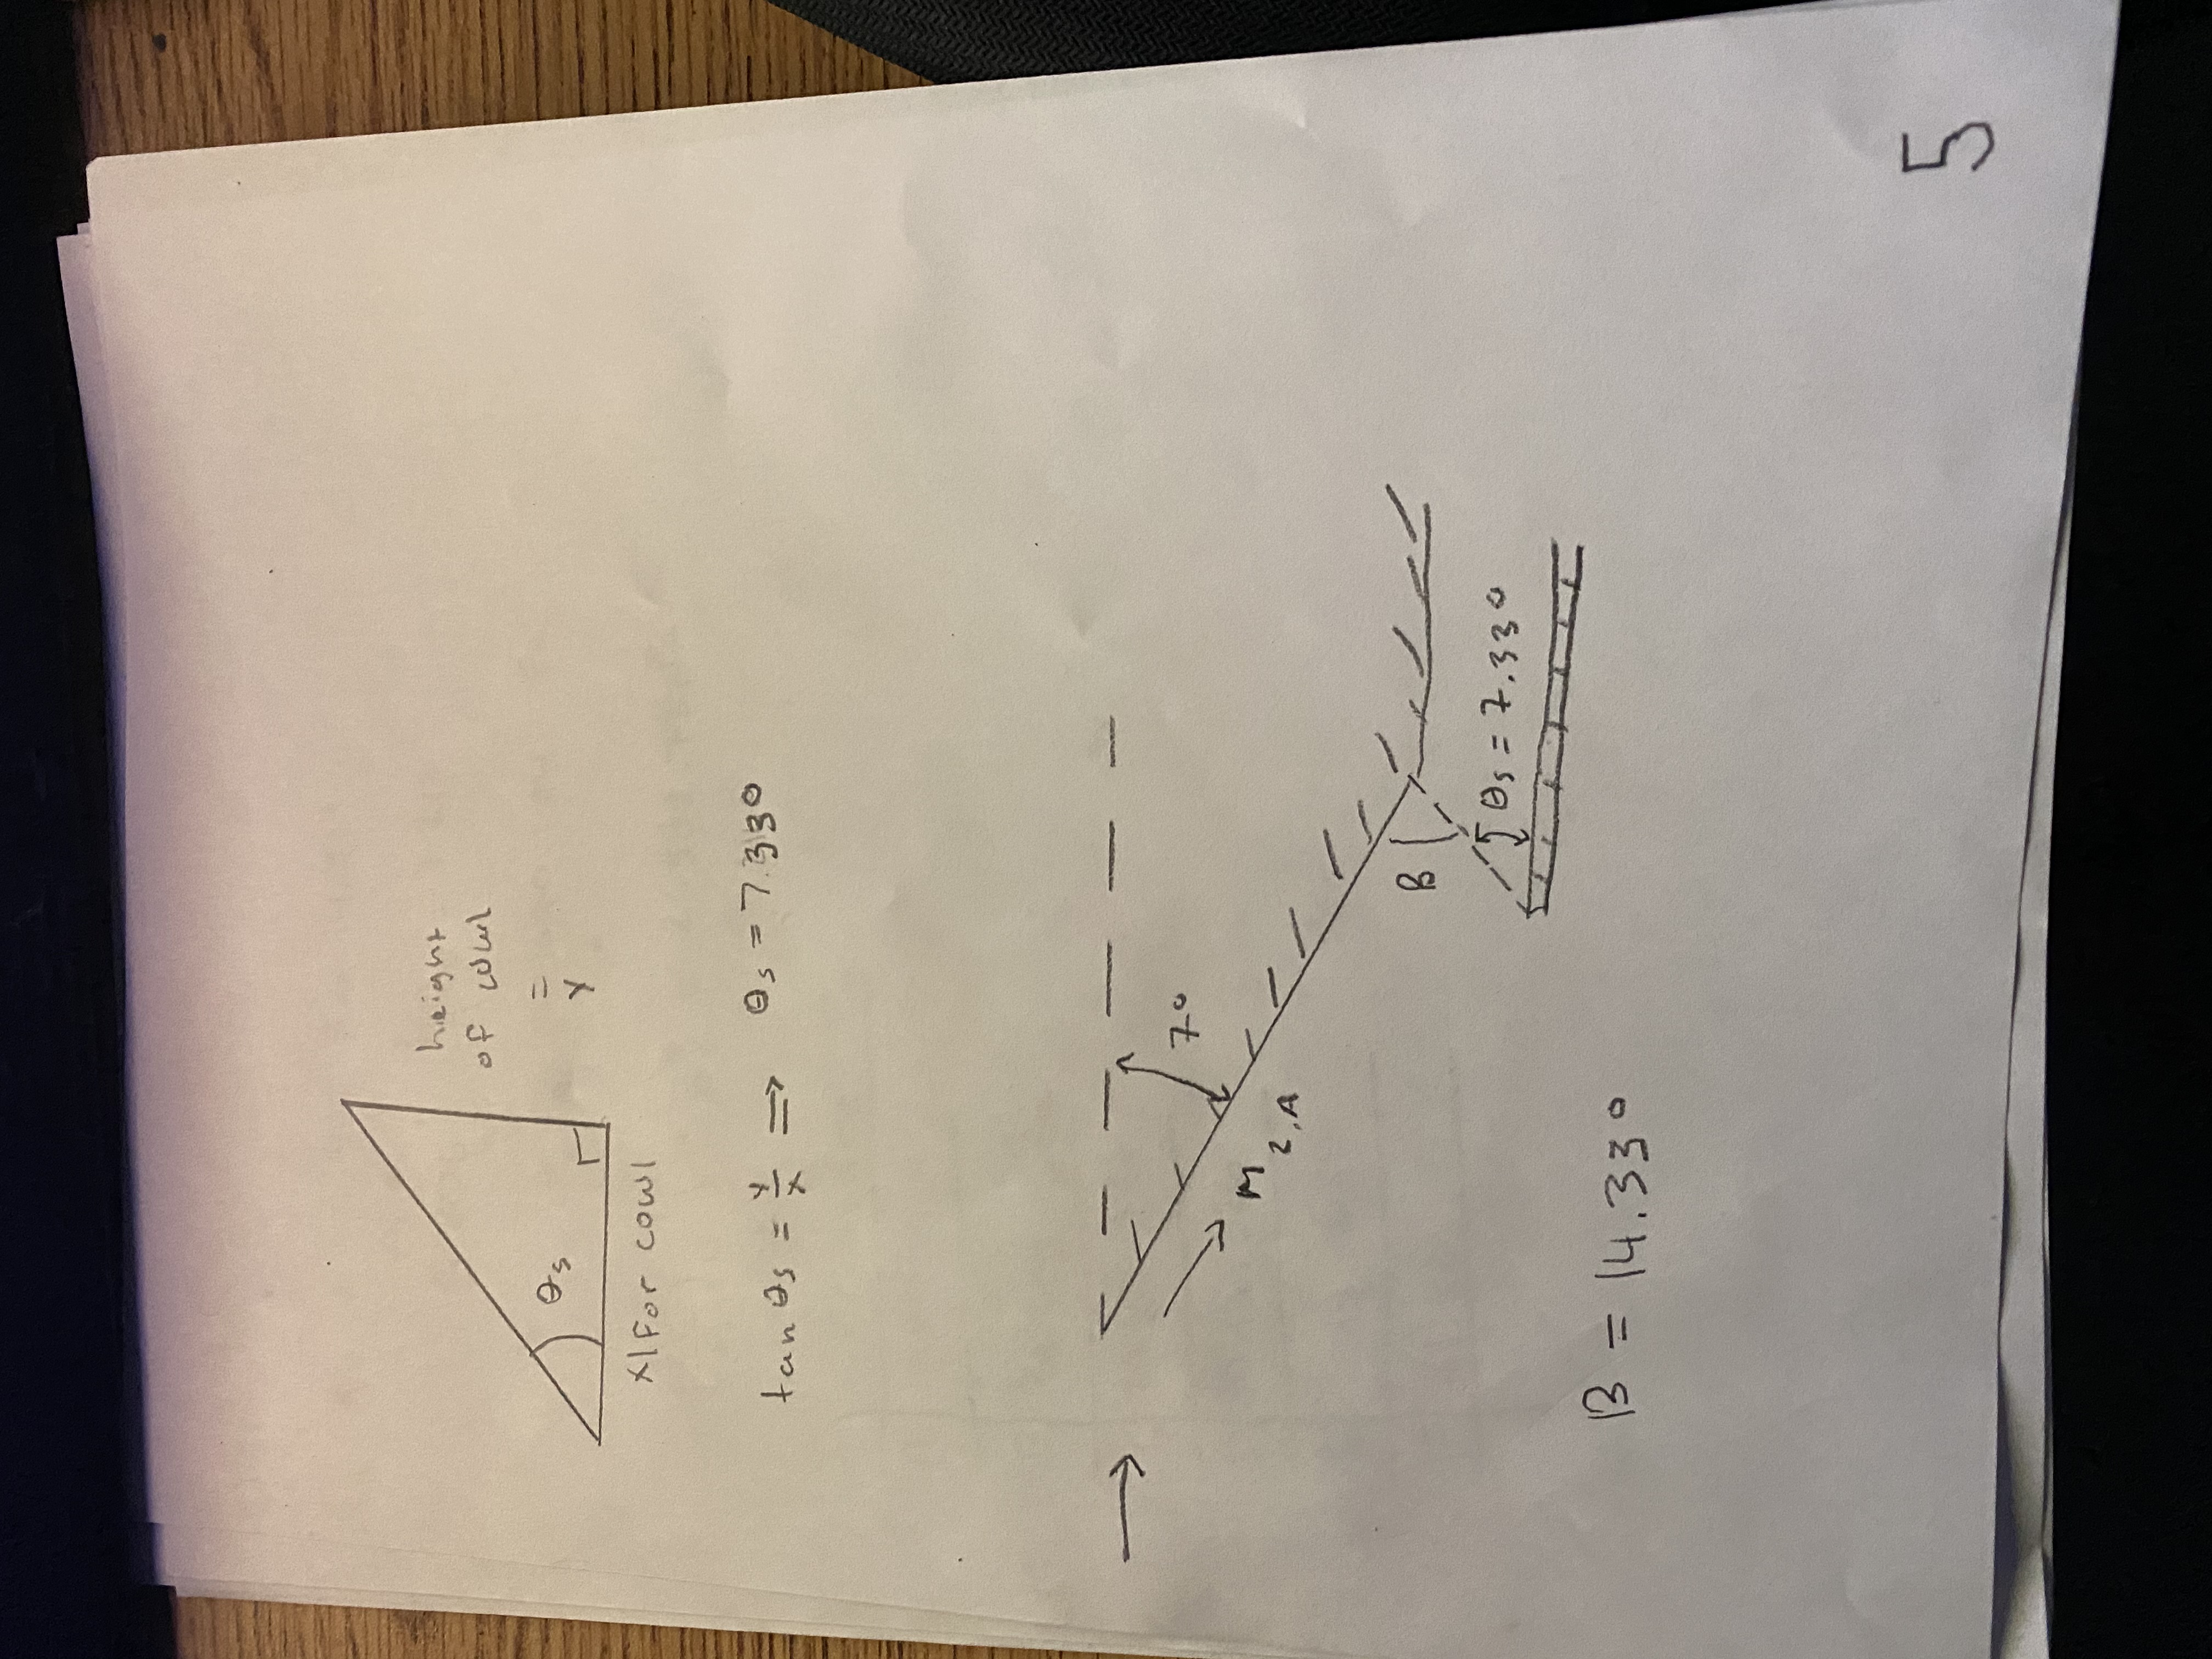 height
of cowl
=
y
θs
x|for cowl
tan θs = y/x ⇒ θs = 7.33°
7°
M2,A
B
θs = 7.33°
B = 14.33°
5